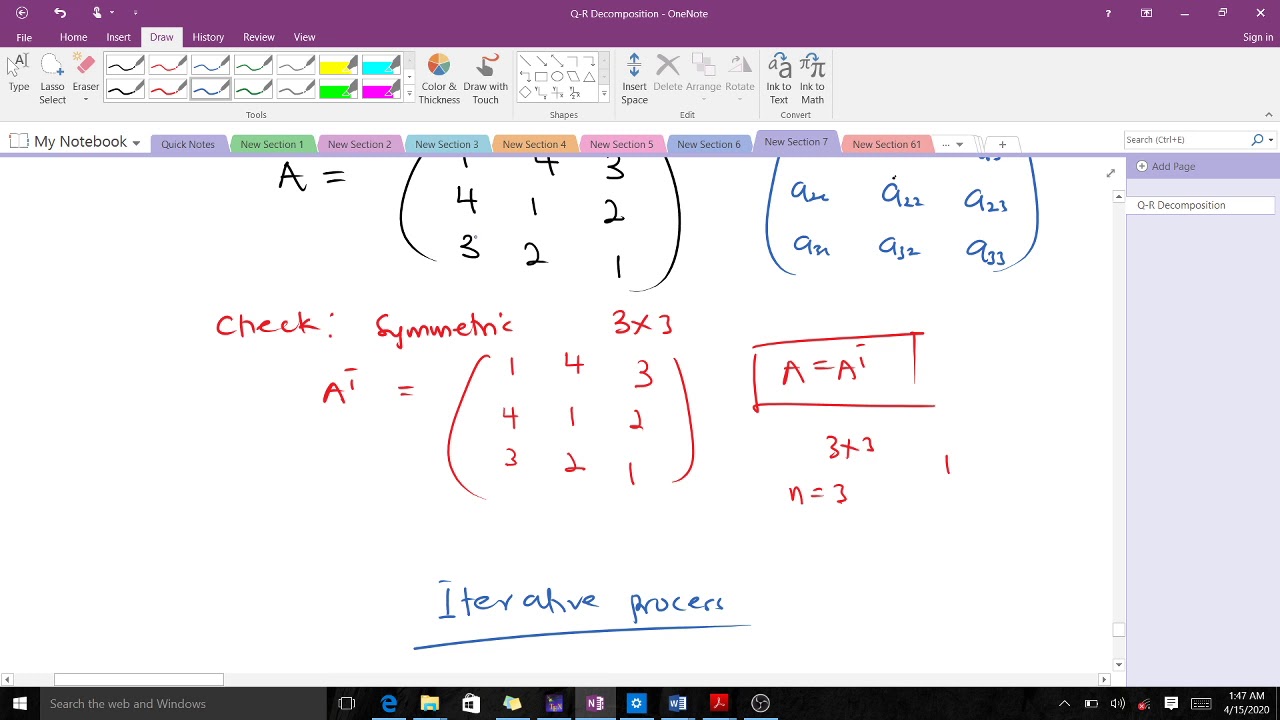 Q-R Decomposition - OneNote
? 
Sign in
File Home Insert Draw History Review View
Type
Lasso Select
Eraser
Color & Thickness
Draw with Touch
Insert Space
Delete
Arrange
Rotate
Ink to Text
Ink to Math
Tools
Shapes
Edit
Convert
My Notebook
Quick Notes
New Section 1
New Section 2
New Section 3
New Section 4
New Section 5
New Section 6
New Section 7
New Section 61
...
Search (Ctrl+E)
Add Page
Q-R Decomposition
A =
1 4 3
4 1 2
3 2 1
a22 a23
a32 a33
Check: Symmetric 3×3
Aᵀ =
1 4 3
4 1 2
3 2 1
A = Aᵀ
3×3
n = 3
1
Iterative process
Search the web and Windows
1:47 AM
4/15/2020